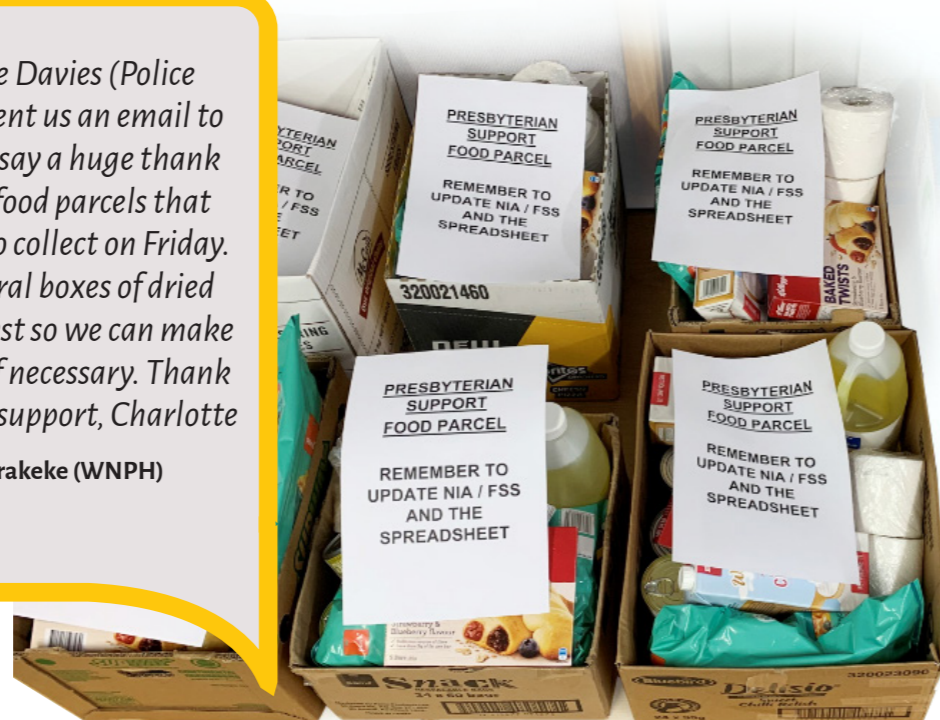 e Davies (Police
ent us an email to
say a huge thank
food parcels that
o collect on Friday.
ral boxes of dried
st so we can make
f necessary. Thank
support, Charlotte
rakeke (WNPH)
YTERIAN
PORT
ARCEL
R TO
/ FSS
EET
PRESBYTERIAN
SUPPORT
FOOD PARCEL
REMEMBER TO
UPDATE NIA / FSS
AND THE
SPREADSHEET
320021460
NEW
PRESBYTERIAN
SUPPORT
FOOD PARCEL
REMEMBER TO
UPDATE NIA / FSS
AND THE
SPREADSHEET
BAKED
TWISTS
PRESBYTERIAN
SUPPORT
FOOD PARCEL
REMEMBER TO
UPDATE NIA / FSS
AND THE
SPREADSHEET
Strawberry &
Blueberry flavour
Snack
PRESBYTERIAN
SUPPORT
FOOD PARCEL
REMEMBER TO
UPDATE NIA / FSS
AND THE
SPREADSHEET
320023090
Bluebird
Delisio
Chilli Relish